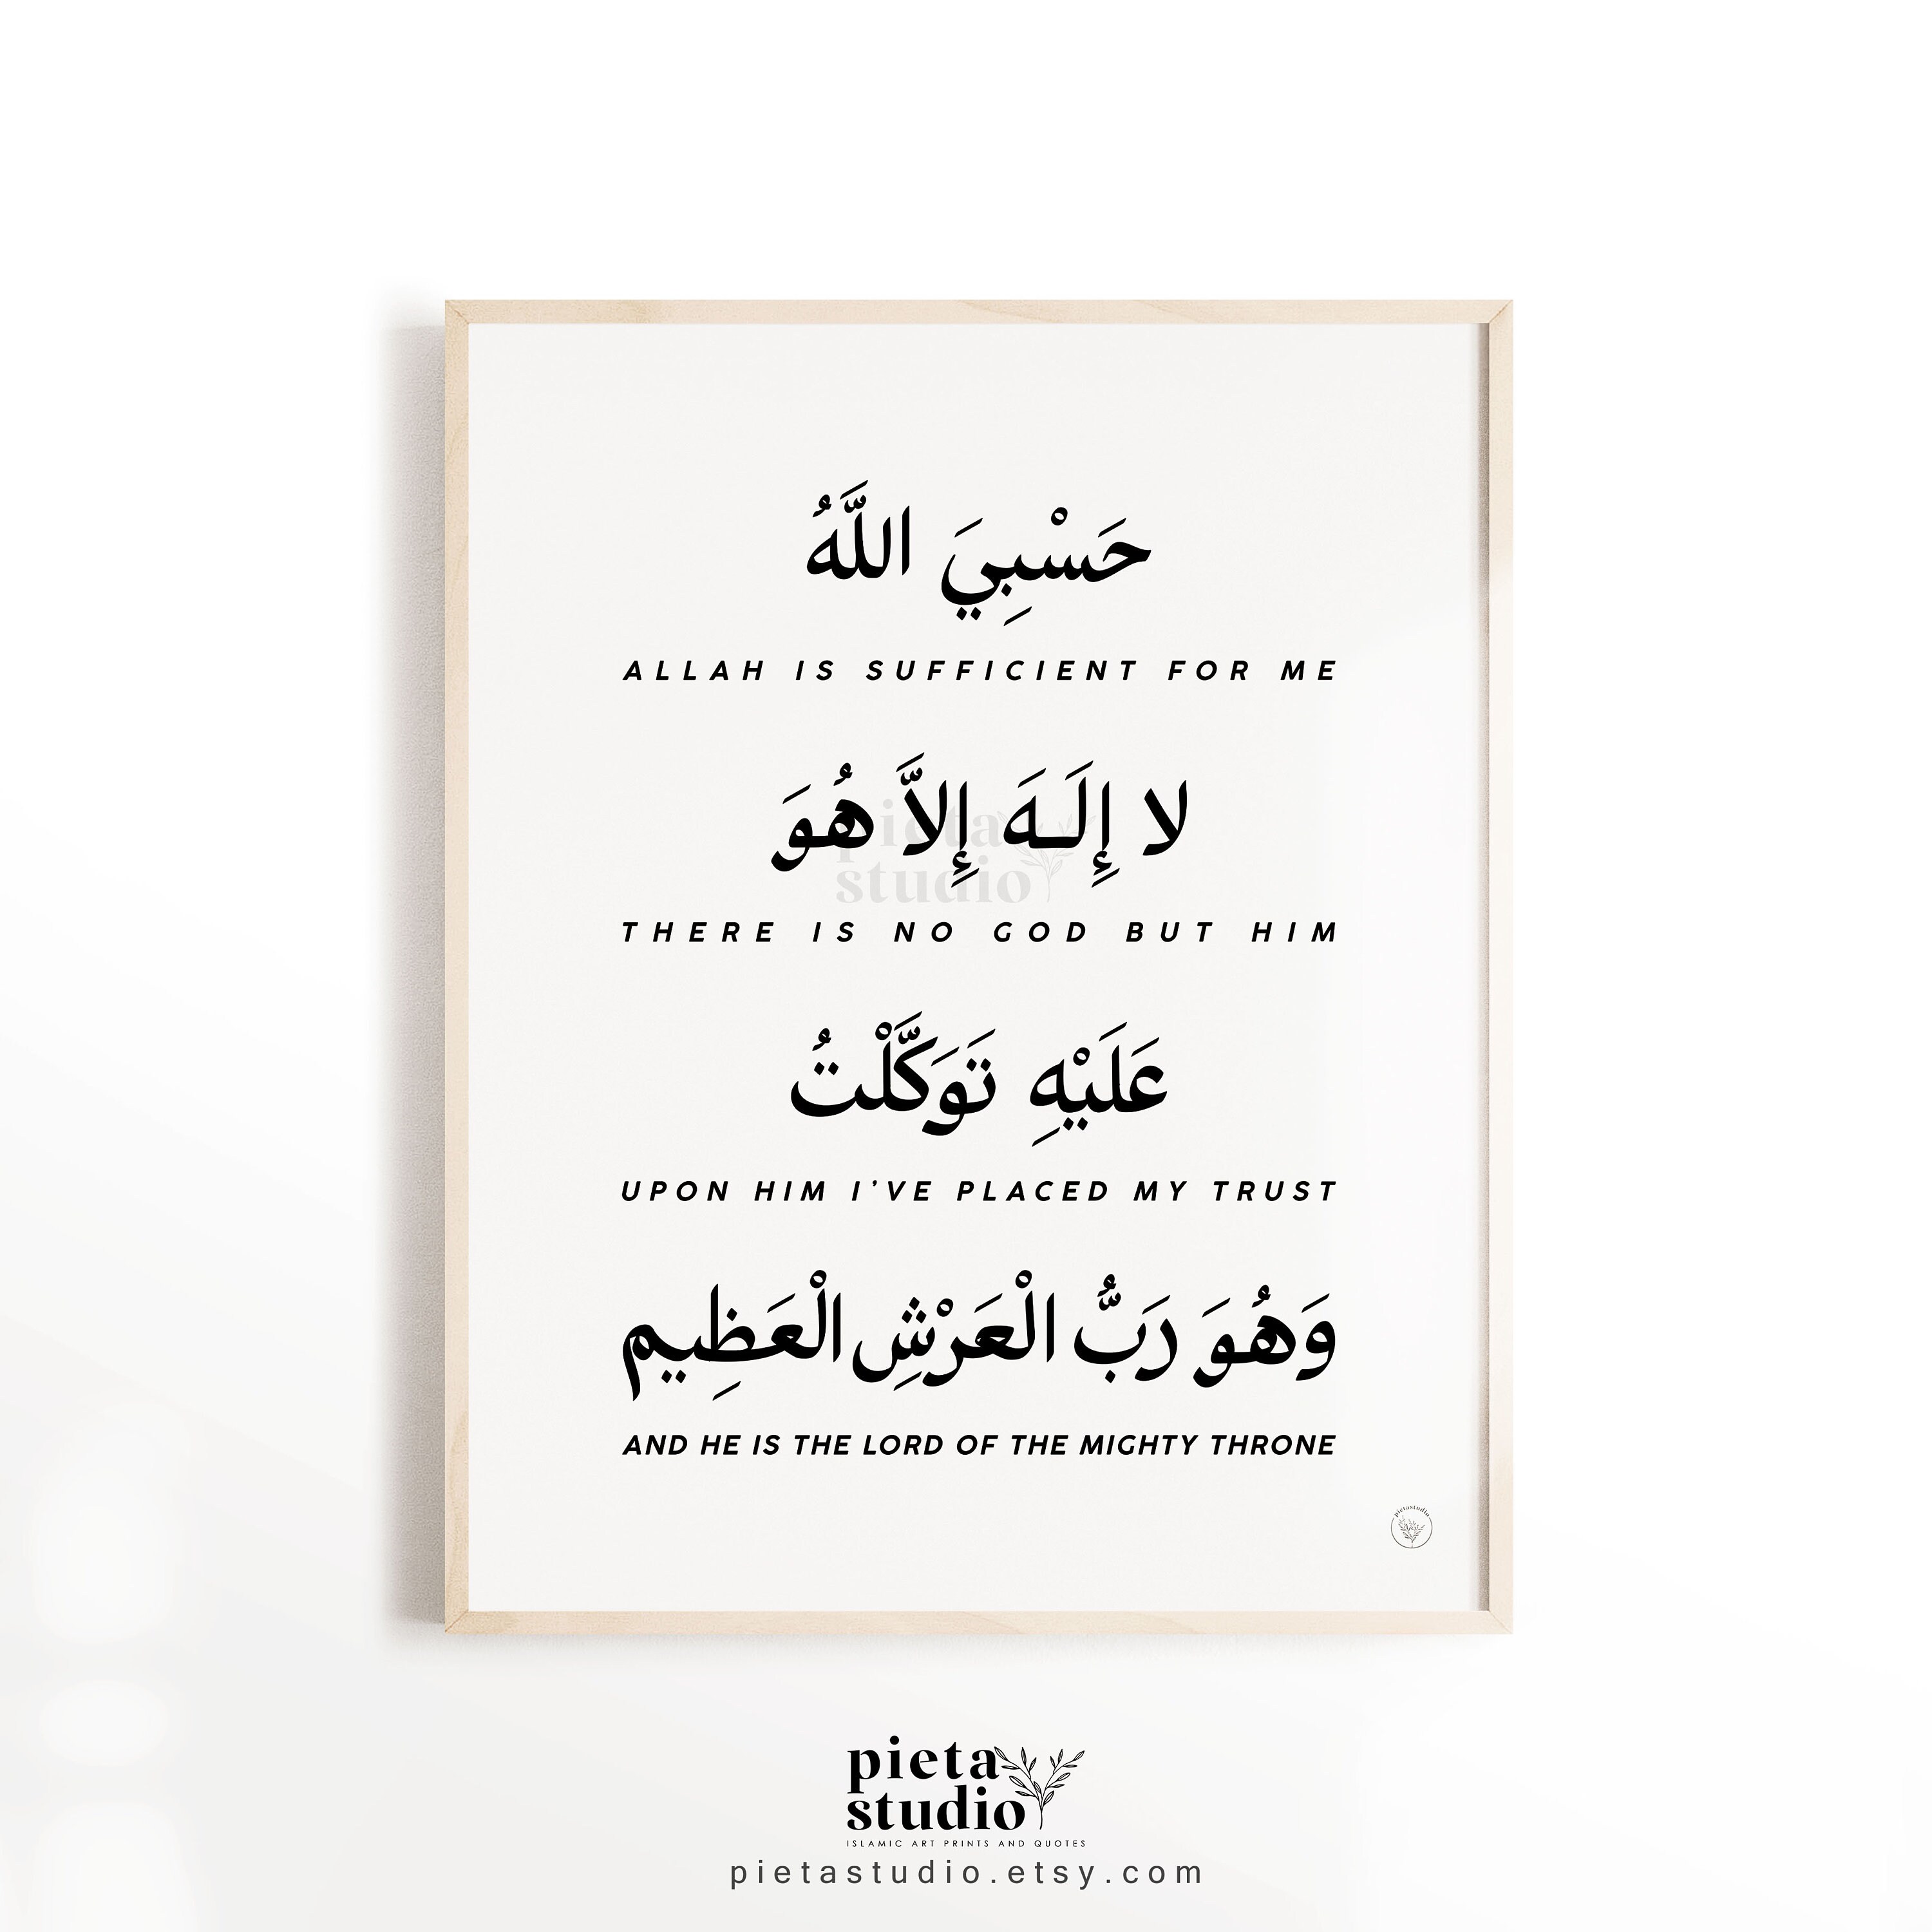 حَسْبِيَ اللَّهُ
ALLAH IS SUFFICIENT FOR ME
لا إِلَـهَ إِلاَّ هُوَ
pieta
studio
THERE IS NO GOD BUT HIM
عَلَيْهِ تَوَكَّلْتُ
UPON HIM I'VE PLACED MY TRUST
وَهُوَ رَبُّ الْعَرْشِ الْعَظِيم
AND HE IS THE LORD OF THE MIGHTY THRONE
pietastudio
pieta
studio
ISLAMIC ART PRINTS AND QUOTES
pietastudio.etsy.com